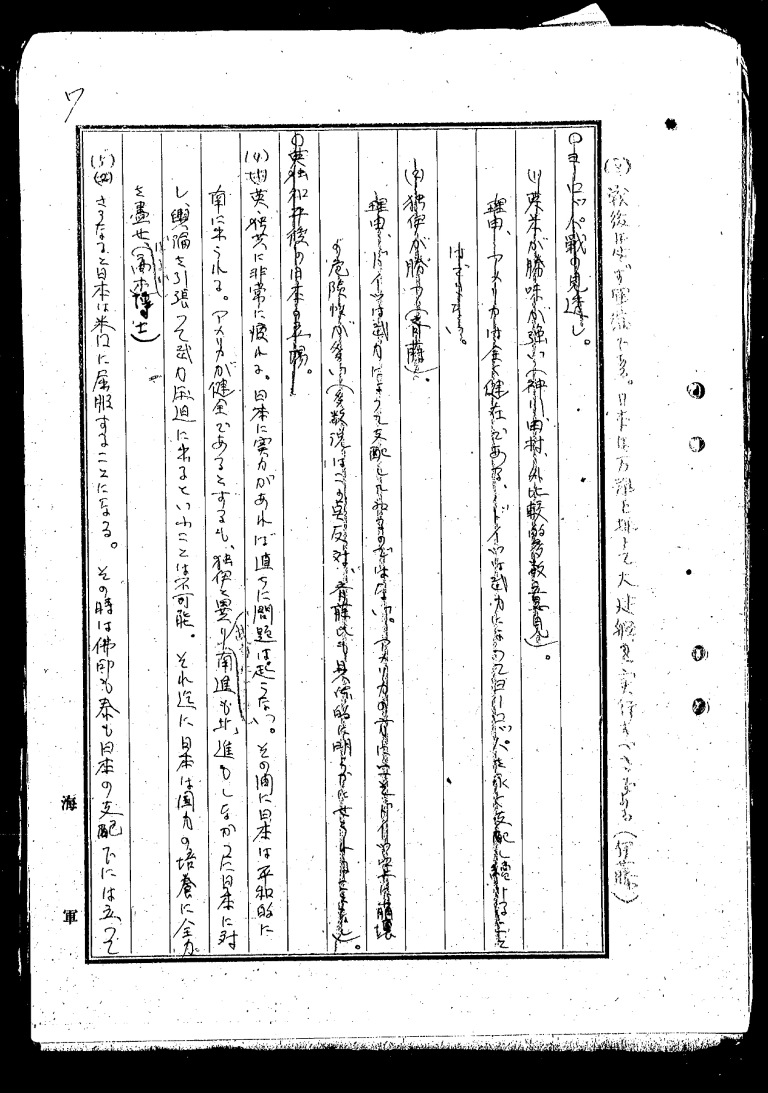 7
戦後必ず軍縮である。日本は万難を排して大建艦を実行すべきである(伊藤)
〇ヨーロッパ戦の見透し。
(1)英米が勝味が強い(神川、田村、外比較的多数意見)。
理由、アメリカは全く健在である。ドイツは武力によってヨーロッパを永く支配し続けること
はできない。
(2)独伊が勝つ(斉藤)。
理由、ドイツは武力によって支配して
の危険性が多い(多数説はこの点反対、斉藤氏も具体的に明らかにせられ
〇英独和平後の日本の立場。
(4)英、独共に非常に疲れる。日本に実力があれば直ちに問題は起らない。その間に日本は平和的に
南に来られる。アメリカが健全であるとするも、独伊と異り南進も北進もしなかった日本に対
し、輿論を引張って武力圧迫に来るといふことは不可能。それ迄に日本は国力の培養に全力
を盡せ(高木博士)
(5)さうなると日本は米国に屈服することになる。その時は佛印も泰も日本の支配下には立って
海軍